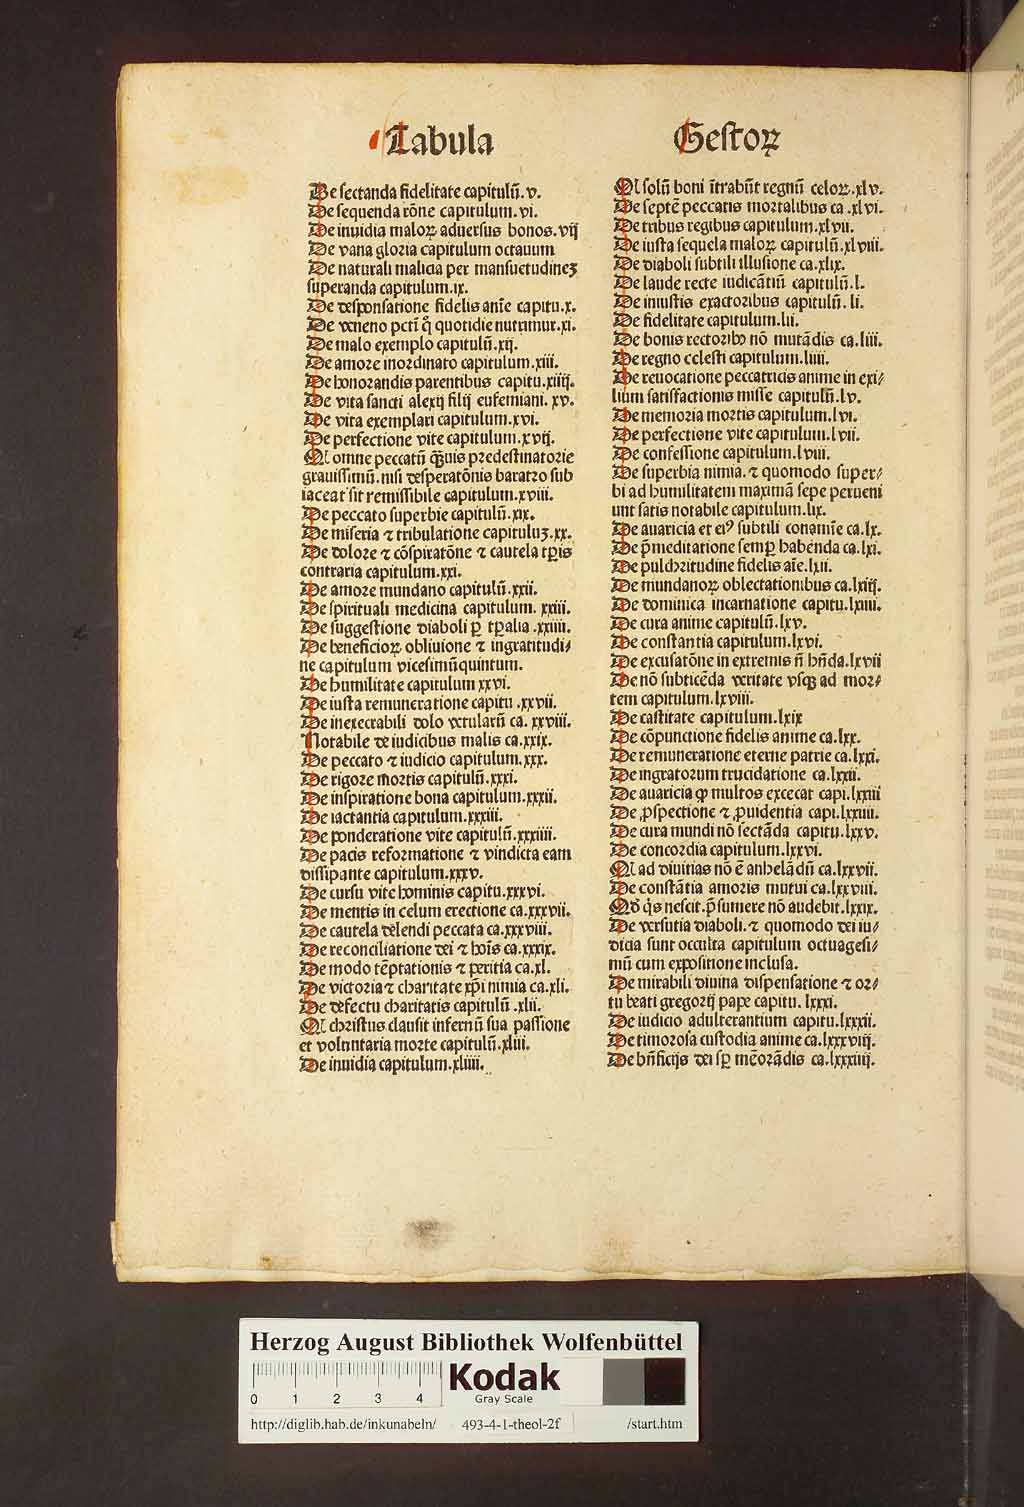 Tabula
De sectanda fidelitate capitulũ.v.
De sequenda rõne capitulum.vi.
De inuidia maloꝝ aduersus bonos.vij
De vana gloria capitulum octauum
De naturali malicia per mansuetudineʒ
superanda capitulum.ix.
De desponsatione fidelis anĩe capitu.x.
De veneno pctĩ q̊ quotidie nutrimur.xi.
De malo exemplo capitulũ.xij.
De amore inordinato capitulum.xiii.
De honorandis parentibus capitu.xiiij.
De vita sancti alexij filij eufemiani. xv.
De vita exemplari capitulum.xvi.
De perfectione vite capitulum.xvij.
Ql omne peccatũ q̃uis predestinatorie
grauissimũ. nisi desperatõnis baratro sub
iaceat sit remissibile capitulum.xviii.
De peccato superbie capitulũ.xix.
De miseria ⁊ tribulatione capituluʒ.xx.
De dolore ⁊ cõspiratõne ⁊ cautela tꝑis
contraria capitulum.xxi.
De amore mundano capitulũ.xxii.
De spirituali medicina capitulum. xxiii.
De suggestione diaboli ꝑ tꝑalia .xxiiii.
De beneficioꝝ obliuione ⁊ ingratitudi⸗
ne capitulum vicesimũquintum.
De humilitate capitulum xxvi.
De iusta remuneratione capitu .xxvii.
De inexecrabili dolo vetularũ ca. xxviii.
Notabile de iudicibus malis ca.xxix.
De peccato ⁊ iudicio capitulum.xxx.
De rigore mortis capitulũ.xxxi.
De inspiratione bona capitulum.xxxii.
De iactantia capitulum.xxxiii.
De ponderatione vite capitulũ.xxxiiii.
De pacis reformatione ⁊ vindicta eam
dissipante capitulum.xxxv.
De cursu vite hominis capitu.xxxvi.
De mentis in celum erectione ca.xxxvii.
De cautela delendi peccata ca.xxxviii.
De reconciliatione dei ⁊ hoĩs ca.xxxix.
De modo tẽptationis ⁊ peritia ca.xl.
De victoria ⁊ charitate xp̃i nimia ca.xli.
De defectu charitatis capitulũ .xlii.
Ql christus clausit infernũ sua passione
et voluntaria morte capitulũ.xliii.
De inuidia capitulum.xliiii.
Gestoꝝ
Ql solũ boni ĩtrabũt regnũ celoꝝ.xlv.
De septẽ peccatis mortalibus ca .xlvi.
De tribus regibus capitulum.xlvii.
De iusta sequela maloꝝ capitulũ.xlviii.
De diaboli subtili illusione ca.xlix.
De laude recte iudicãtiũ capitulũ.l.
De iniustis exactoribus capitulũ. li.
De fidelitate capitulum.lii.
De bonis rectoribꝰ nõ mutãdis ca.liii.
De regno celesti capitulum.liiii.
De reuocatione peccatricis anime in exi⸗
lium satisfactionis misse capitulũ.lv.
De memoria mortis capitulum.lvi.
De perfectione vite capitulum.lvii.
De confessione capitulum.lviii.
De superbia nimia. ⁊ quomodo super⸗
bi ad humilitatem maximã sepe perueni
unt satis notabile capitulum.lix.
De auaricia et eiꝰ subtili conamĩe ca.lx.
De p̃meditatione semꝑ habenda ca.lxi.
De pulchritudine fidelis aĩe.lxii.
De mundanoꝝ oblectationibus ca.lxiij.
De dominica incarnatione capitu.lxiiii.
De cura anime capitulũ.lxv.
De constantia capitulum.lxvi.
De excusatõne in extremis ñ hñda.lxvii
De nõ subticẽda veritate vsqꝫ ad mor⸗
tem capitulum.lxviii.
De castitate capitulum.lxix
De cõpunctione fidelis anime ca.lxx.
De remuneratione eterne patrie ca.lxxi.
De ingratorum trucidatione ca.lxxii.
De auaricia ꝙ multos excecat capi.lxxiii
De ꝓspectione ⁊ ꝓuidentia capi.lxxiiii.
De cura mundi nõ sectãda capitu.lxxv.
De concordia capitulum.lxxvi.
Ql ad diuitias nõ ẽ anhelãdũ ca.lxxvii.
De constãtia amoris mutui ca.lxxviii.
Qd̾ q̃s nescit. p̃sumere nõ audebit.lxxix.
De versutia diaboli. ⁊ quomodo dei iu⸗
dicia sunt occulta capitulum octuagesi⸗
mũ cum expositione inclusa.
De mirabili diuina dispensatione ⁊ or⸗
tu beati gregorij pape capitu. lxxxi.
De iudicio adulterantium capitu.lxxxii.
De timorosa custodia anime ca.lxxxviij.
De bñficijs dei sꝑ mẽorãdis ca.lxxxiiij.
Herzog August Bibliothek Wolfenbüttel
0 1 2 3 4
Kodak
Gray Scale
http://diglib.hab.de/inkunabeln/ 493-4-1-theol-2f /start.htm